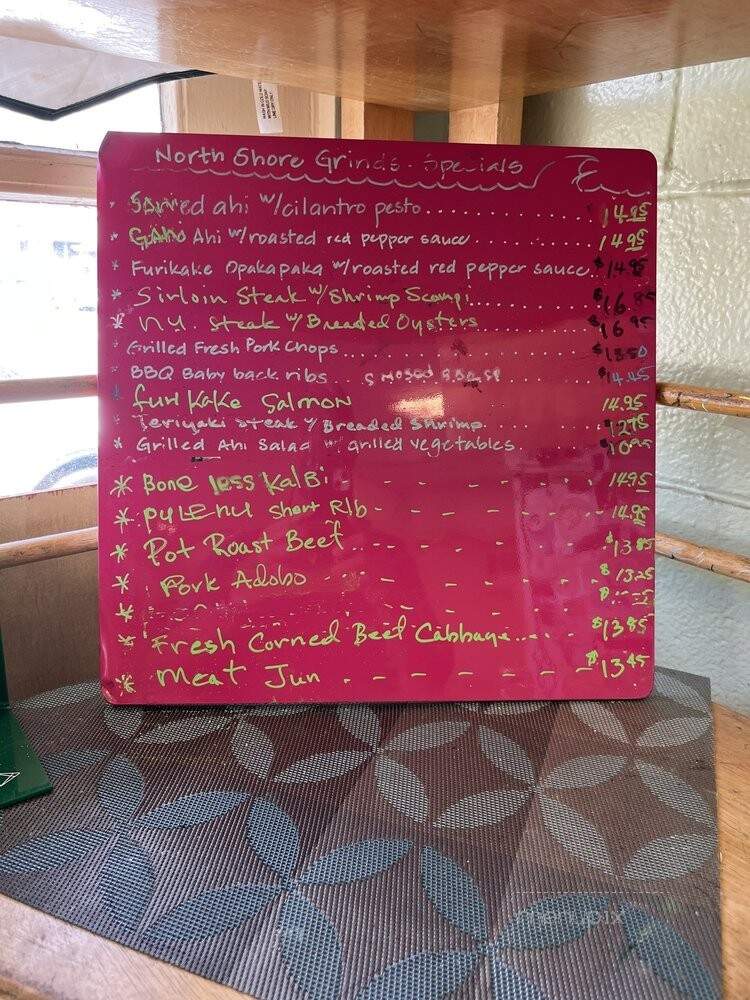 North Shore Grinds. Specials
ahi w/cilantro pesto 14.95
Ahi w/roasted red pepper sauce 14.95
* Furikake Opakapaka w/roasted red pepper sauce $14.95
* Sirloin Steak w/Shrimp Scampi $16.85
* N.Y. Steak w/Breaded Oysters $16.95
Grilled Fresh Pork Chops $13.50
BBQ Baby back ribs $14.45
furikake Salmon 14.95
* Teriyaki Steak w/ Breaded Shrimp 12.75
* Grilled Ahi Salad w grilled vegetables
* Bone less KalBi - - - - - 14.95
* pyLEhu short Rib - - - - - 14.95
* Pot Roast Beef - - - - $13.85
* Pork Adobo - - - - - $13.25
*
* Fresh Corned Beef Cabbage $13.85
* Meat Jun - - - - - - $13.45
menupix